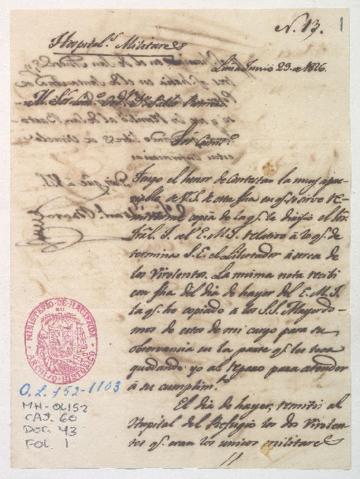 N. 13.
1
Hospital.s Militares
Lima Junio 23. de 1826.
Tengo el honor de contestar la muy apre-
ciable de V.S. de esta fha en q.e se sirve
copia de la q.e le dirijio el
al E.M.J. relativo à lo q.e de-
termina S.E. el Libertador àcerca de
los Virolentos. La misma nota recibi
con fha del dia de hayer del E.M.J.
la q.e he copiado a los S.S. Mayordo-
mos de estos de mi cargo para su
observancia en la parte q.e les toca
quedando yo al reparo para atender
à su cumplim.to
El dia de hayer, remiti al
Hospital del Refugio los dos Virolen-
tos q.e eran los unicos militares
MINISTERIO DE HACIENDA
ARCHIVO HISTORICO
O.L. 152-1103
MH-OL152
CAJ. 60
DOC. 43
FOL. 1